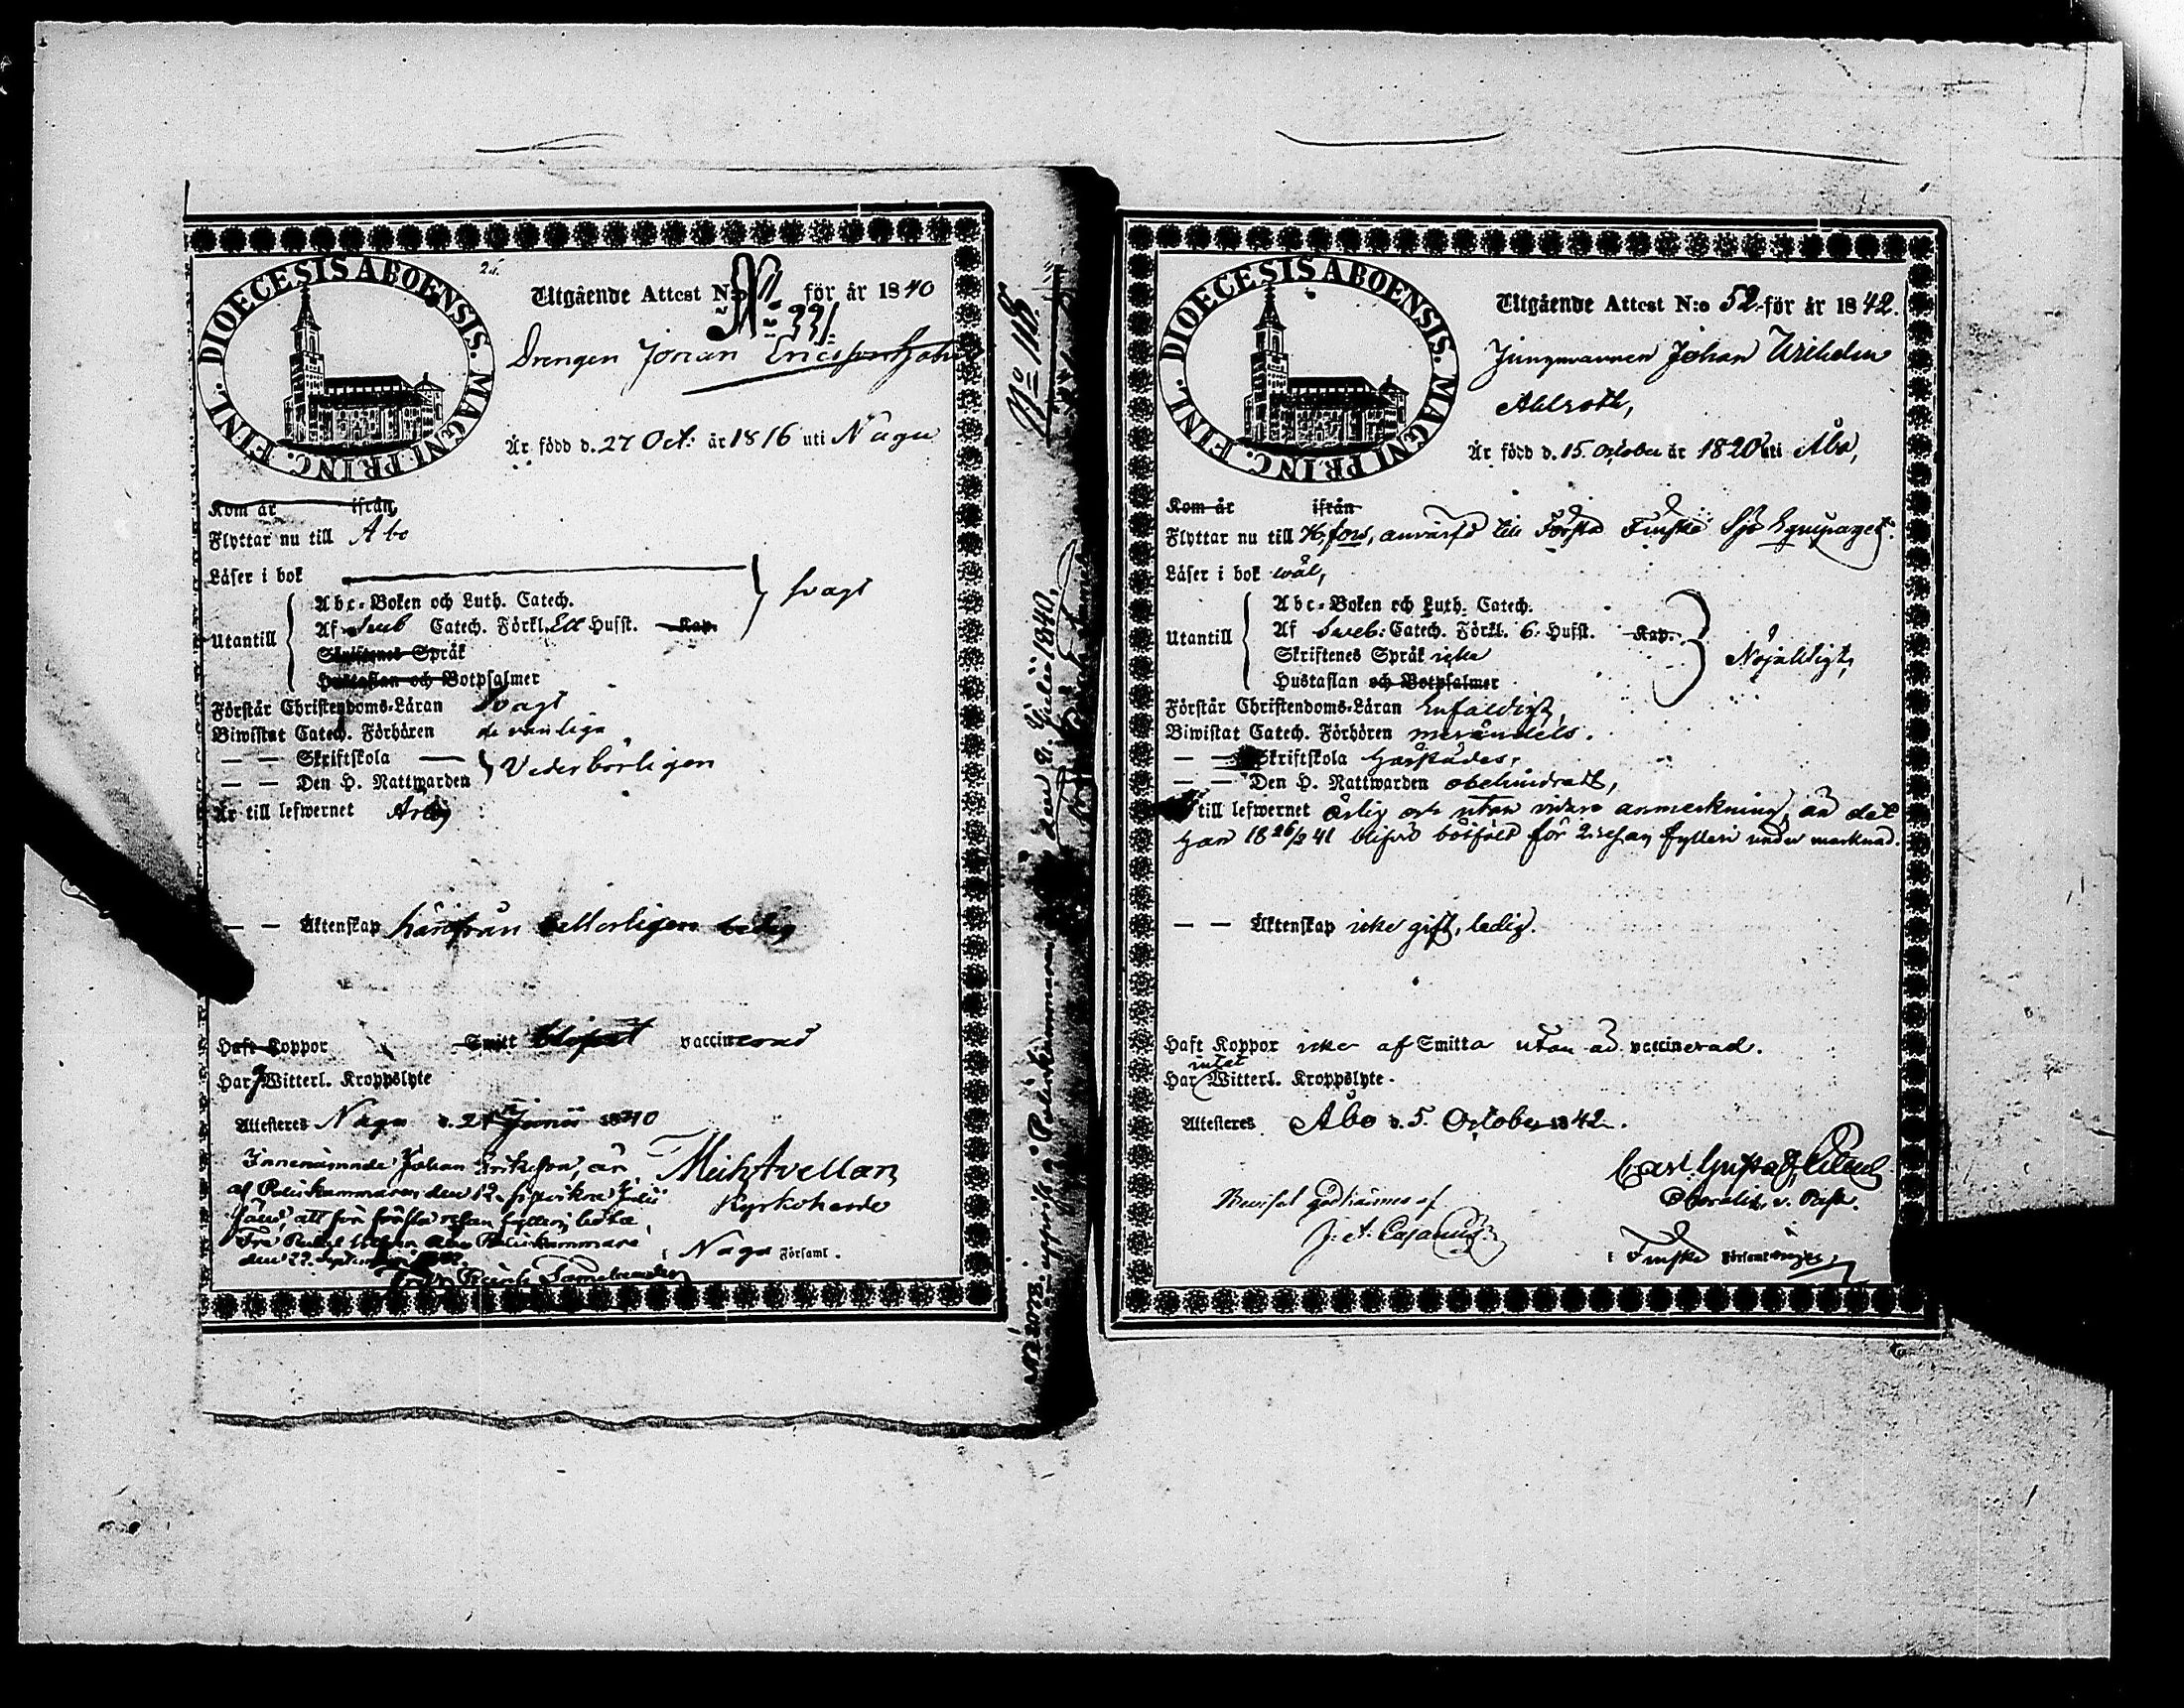 DIOECESIS ABOENSIS. MAGNI PRINC. FINL.
Utgående Attest N:o för år 1840
N:o 331
Drengen Johan Ericsson
Är född d. 27 Oct: år 1816 uti Nagu
Kom år ifrån
Flyttar nu till Åbo
Läser i bok
Utantill
Abc-Boken och Luth. Catech.
Af Sveb Catech. Förkl. Ett Hufst. Kap.
Skriftenes Språk
Hustaflan och Botpsalmer
svagt
Förstår Christendoms-Läran svagt
Biwistat Catech. Förhören de vanliga
— — Skriftskola —
— — Den H. Nattwarden
Vederbörligen
Är till lefwernet Ärlig
— — Äktenskap härifrån ledig
Haft Koppor Smitt blifvit vaccinerad
Har Witterl. Kroppslyte
Attesteres Nagu d. 21 Junii 1840
Innenämnde Johan Eriksson, är
af Poliskammaren den 12
fäld, att för första resan fylleri böta
den 22 September
Mich Avellan
Kyrkoherde
i Nagu Församl.
N:o 118
uppvist i Poliskammaren den 2 Julii 1840,
DIOECESIS ABOENSIS. MAGNI PRINC. FINL.
Utgående Attest N:o 52 för år 1842.
Jungmannen Johan Wilhelm
Ahlroth,
Är född d. 15. October år 1820 uti Åbo,
Kom år ifrån
Flyttar nu till H:fors, anvärfd till Första Finska Sjö Equipaget.
Läser i bok wäl,
Utantill
Abc-Boken och Luth. Catech.
Af Sveb: Catech. Förkl. 6. Hufst. Kap.
Skriftenes Språk icke
Hustaflan och Botpsalmer
Nöjaktigt,
Förstår Christendoms-Läran Enfaldigt,
Biwistat Catech. Förhören merendels.
— — Skriftskola härstädes,
— — Den H. Nattwarden obehindradt,
till lefwernet ärlig och utan vidare anmerkning, än det
han 18 26/2 41 blifvit bötfäld för 2. resan fylleri under marknad.
— — Äktenskap icke gift, ledig.
Haft Koppor icke af Smitta utan är vaccinerad.
intet
Har Witterl. Kroppslyte.
Attesteres Åbo d. 5. October 1842.
Carl Gustaf
v. Past.
Beviset godkännes af
J. A.
i Finska Församlingen